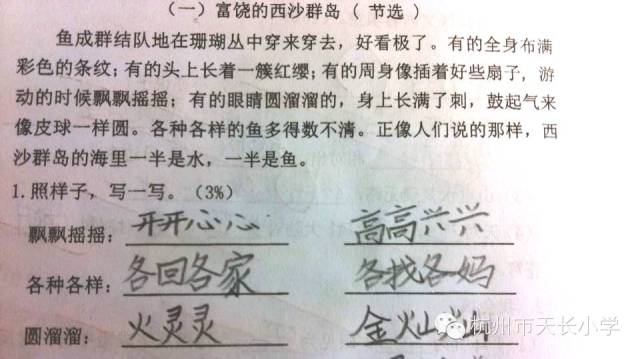 （一）富饶的西沙群岛（节选）
鱼成群结队地在珊瑚丛中穿来穿去，好看极了。有的全身布满
彩色的条纹；有的头上长着一簇红缨；有的周身像插着好些扇子，游
动的时候飘飘摇摇；有的眼睛圆溜溜的，身上长满了刺，鼓起气来
像皮球一样圆。各种各样的鱼多得数不清。正像人们说的那样，西
沙群岛的海里一半是水，一半是鱼。
1.照样子，写一写。（3%）
飘飘摇摇：开开心心 高高兴兴
各种各样：各回各家 各找各妈
圆溜溜：火灵灵 金灿灿
杭州市天长小学